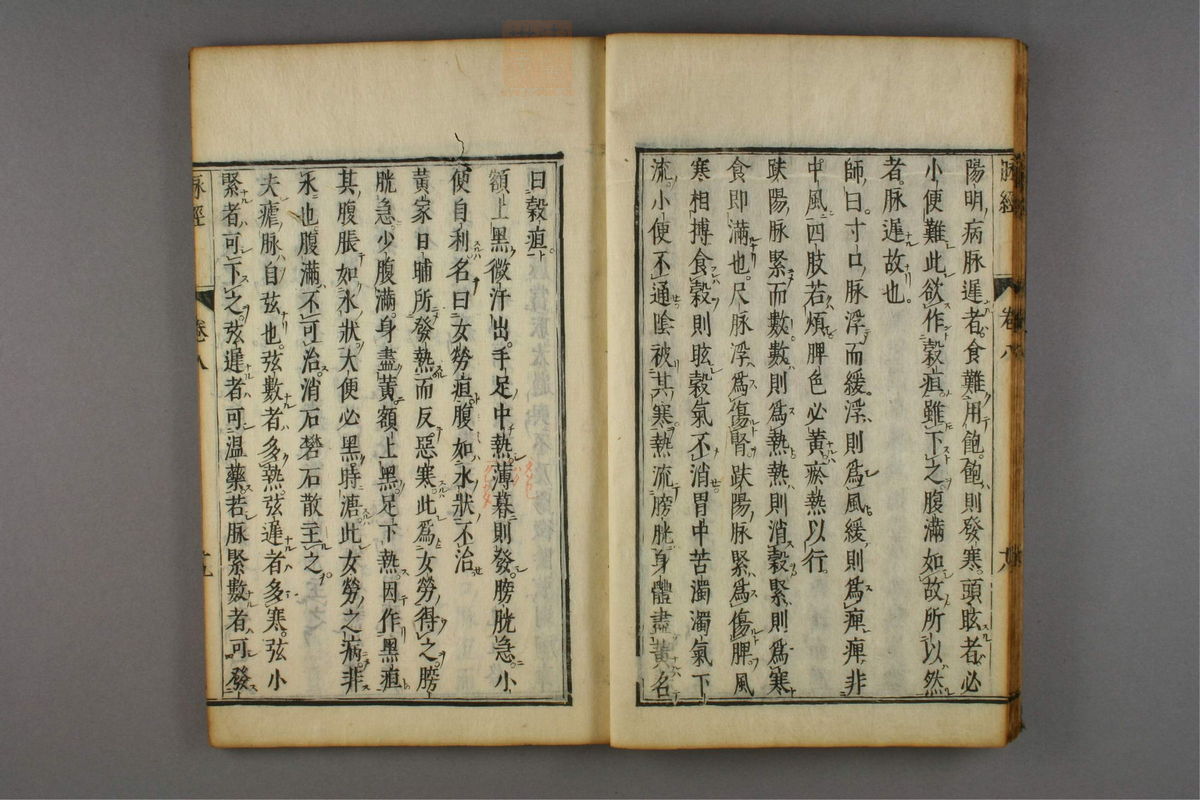 陽明病脉遲者食難用飽飽則發寒頭眩者必
小便難此欲作穀疸雖下之腹滿如故所以然
者脉遲故也
師曰寸口脉浮而緩浮則爲風緩則爲痺痺非
中風四肢若煩脾色必黃瘀熱以行
趺陽脉緊而數數則爲熱熱則消穀緊則爲寒
食即滿也尺脉浮爲傷腎趺陽脉緊爲傷脾風
寒相搏食穀則眩穀氣不消胃中苦濁濁氣下
流小便不通陰被其寒熱流膀胱身體盡黃名
脉經 卷八
曰穀疸
額上黑微汗出手足中熱薄暮則發膀胱急小
便自利名曰女勞疸腹如水狀不治
黃家日晡所發熱而反惡寒此爲女勞得之膀
胱急少腹滿身盡黃額上黑足下熱因作黑疸
其腹脹如水狀大便必黑時溏此女勞之病非
水也腹滿不可治消石礬石散主之
夫瘧脉自弦也弦數者多熱弦遲者多寒弦小
緊者可下之弦遲者可溫藥若脉緊數者可發
脉經 卷八 十九